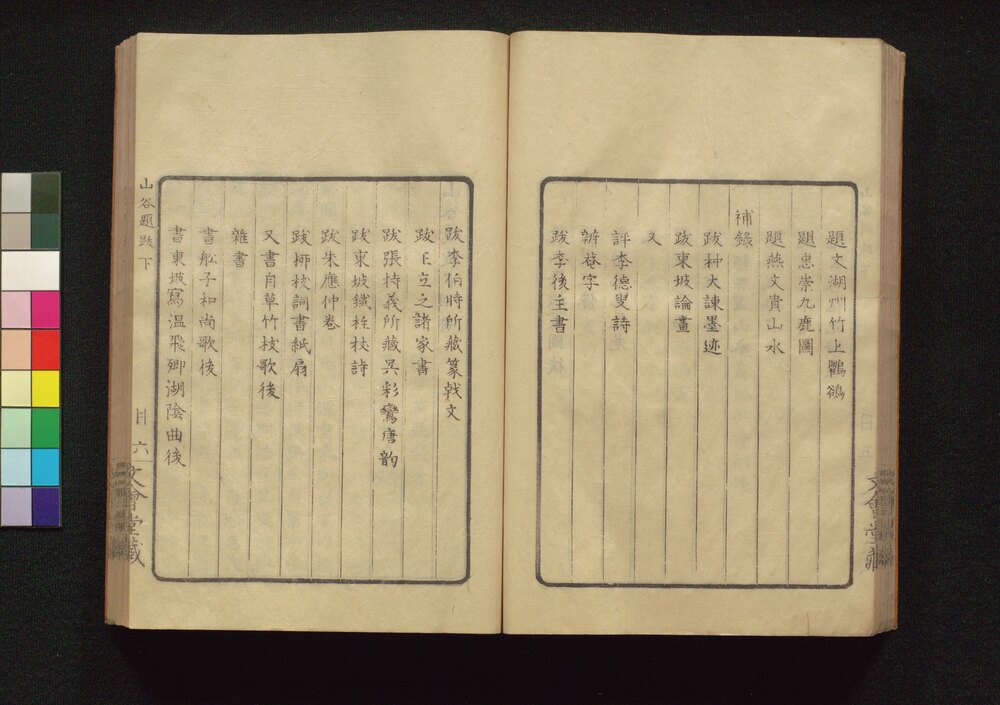 題文湖州竹上鸜鵒
題惠崇九鹿圖
題燕文貴山水
補錄
跋种大諫墨迹
跋東坡論畫
又
評李德叟詩
辨菴字
跋李後主書
跋李伯時所藏篆戟文
跋亡立之諸家書
跋張持義所藏吳彩鸞唐韵
跋東坡鐵柱杖詩
跋朱應仲卷
跋桺枝詞書紙扇
又書自草竹枝歌後
雜書
書舩子和尚歌後
書東坡寫溫飛卿湖陰曲後
山谷題跋下
目 六
文會堂藏
文會堂藏